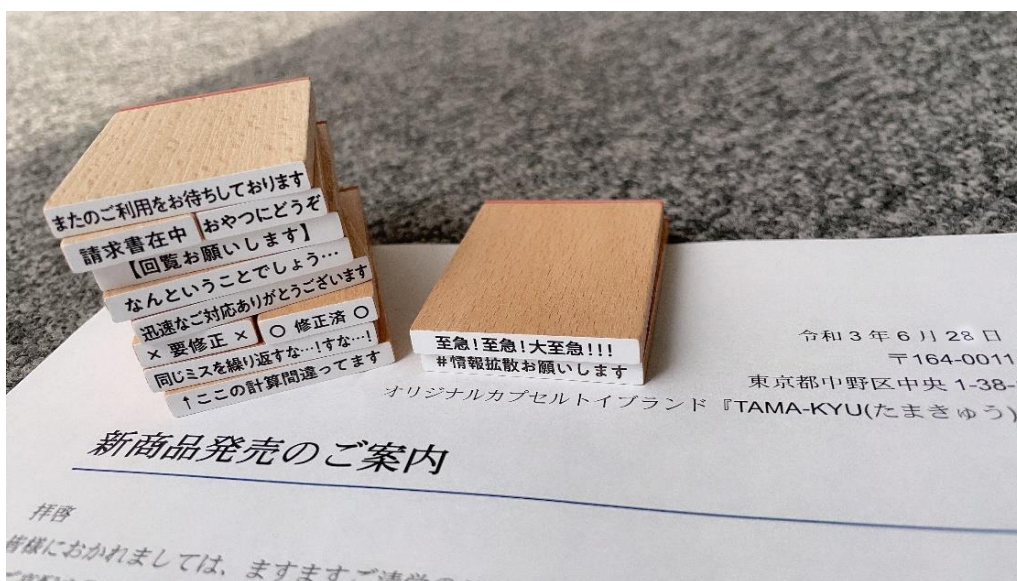 またのご利用をお待ちしております
請求書在中
おやつにどうぞ
【回覧お願いします】
なんということでしょう…
迅速なご対応ありがとうございます
× 要修正 ×
○ 修正済 ○
同じミスを繰り返すな…!すな…!
↑ここの計算間違ってます
至急!至急!大至急!!!
#情報拡散お願いします
令和3年6月28日
〒164-0011
東京都中野区中央 1-38-
オリジナルカプセルトイブランド『TAMA-KYU(たまきゅう)
新商品発売のご案内
拝啓
皆様におかれましては、ますますご清栄の